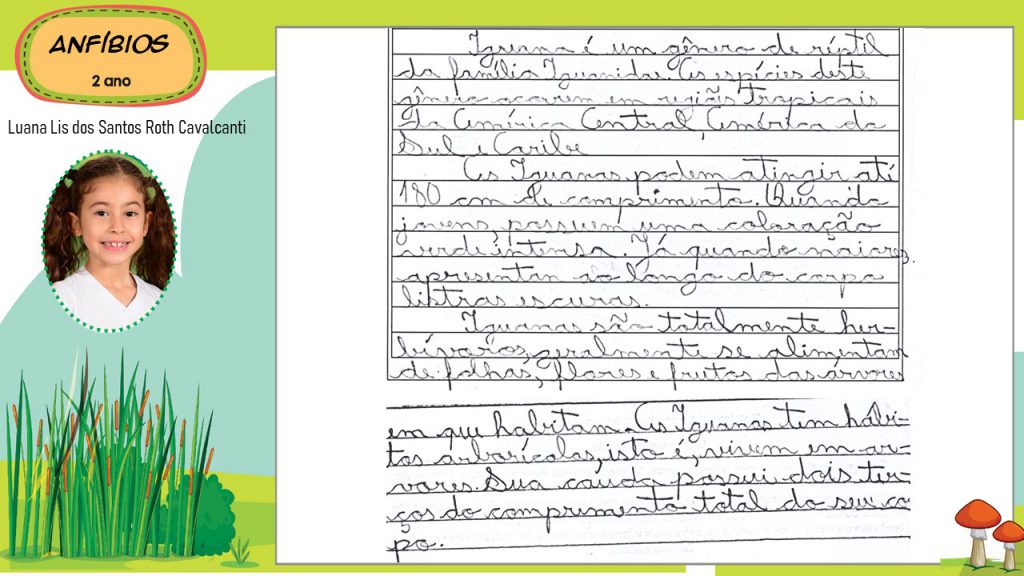 ANFÍBIOS
2 ano
Luana Lis dos Santos Roth Cavalcanti
Iguana é um gênero de réptil
da família Iguanidae. As espécies deste
gênero ocorrem em regiões Tropicais
da América Central, América do
Sul e Caribe
As Iguanas podem atingir até
180 cm de comprimento. Quando
jovens, possuem uma coloração
verde intensa. Já quando maiores.
apresentam ao longo do corpo
listras escuras.
Iguanas são totalmente her-
bívoros, geralmente se alimentam
de folhas, flores e frutos das árvores
em que habitam. As Iguanas tem hábi-
tos arborícolas, isto é, vivem em ar-
vores. Sua cauda possui dois ter-
ços do comprimento total do seu co
po.